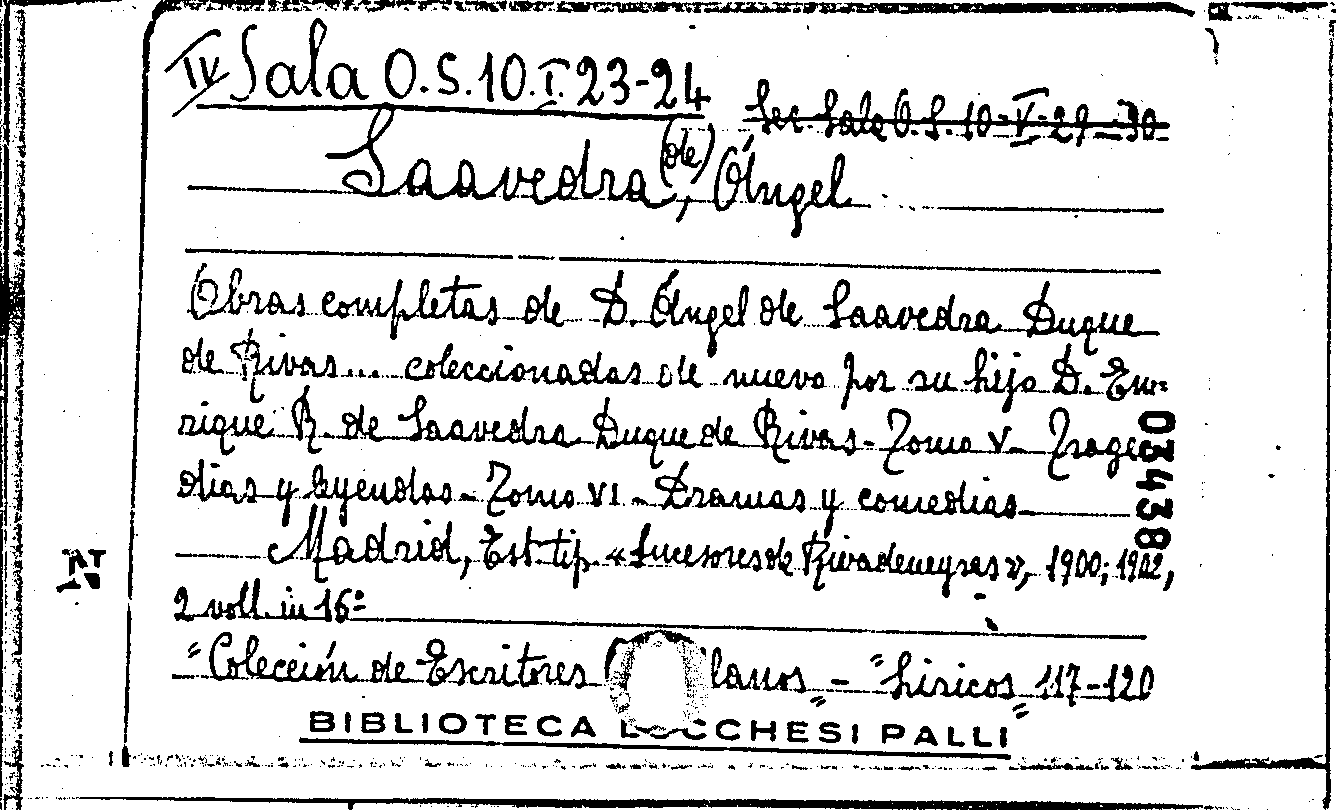 IV Sala O.S.10.I.23-24
Sec. Sala O.S. 10-V-29-30
Saavedra (de), Ángel
Obras completas de D. Ángel de Saavedra Duque
de Rivas... coleccionadas de nuevo por su hijo D. En-
rique R. de Saavedra Duque de Rivas - Tomo V - Trage
dias y leyendas - Tomo VI - Dramas y comedias
Madrid, Est. tip. «Sucesores de Rivadeneyras», 1900; 1902,
2 voll. in 16º
"Colección de Escritores lanos" - "Liricos" 117-120
BIBLIOTECA LUCCHESI PALLI
03438
N